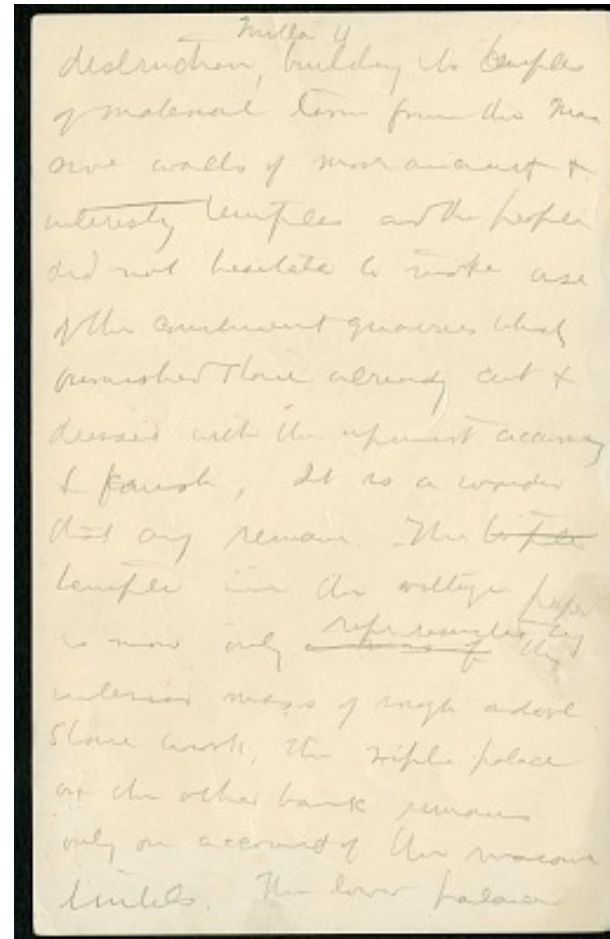 Mitla 4
destruction, building its temples
of material torn from the mas
sive walls of more ancient &
interesting temples and the people
did not hesitate to make use
of the convenient quarries which
furnished stone already cut &
dressed with the utmost accuracy
& finish, It is a wonder
that any remain. The
temple in the village proper
is now only represented by the
interior mass of rough adobe
stone work, the triple palace
on the other bank remains
only on account of the massive
lintels. The lower palace